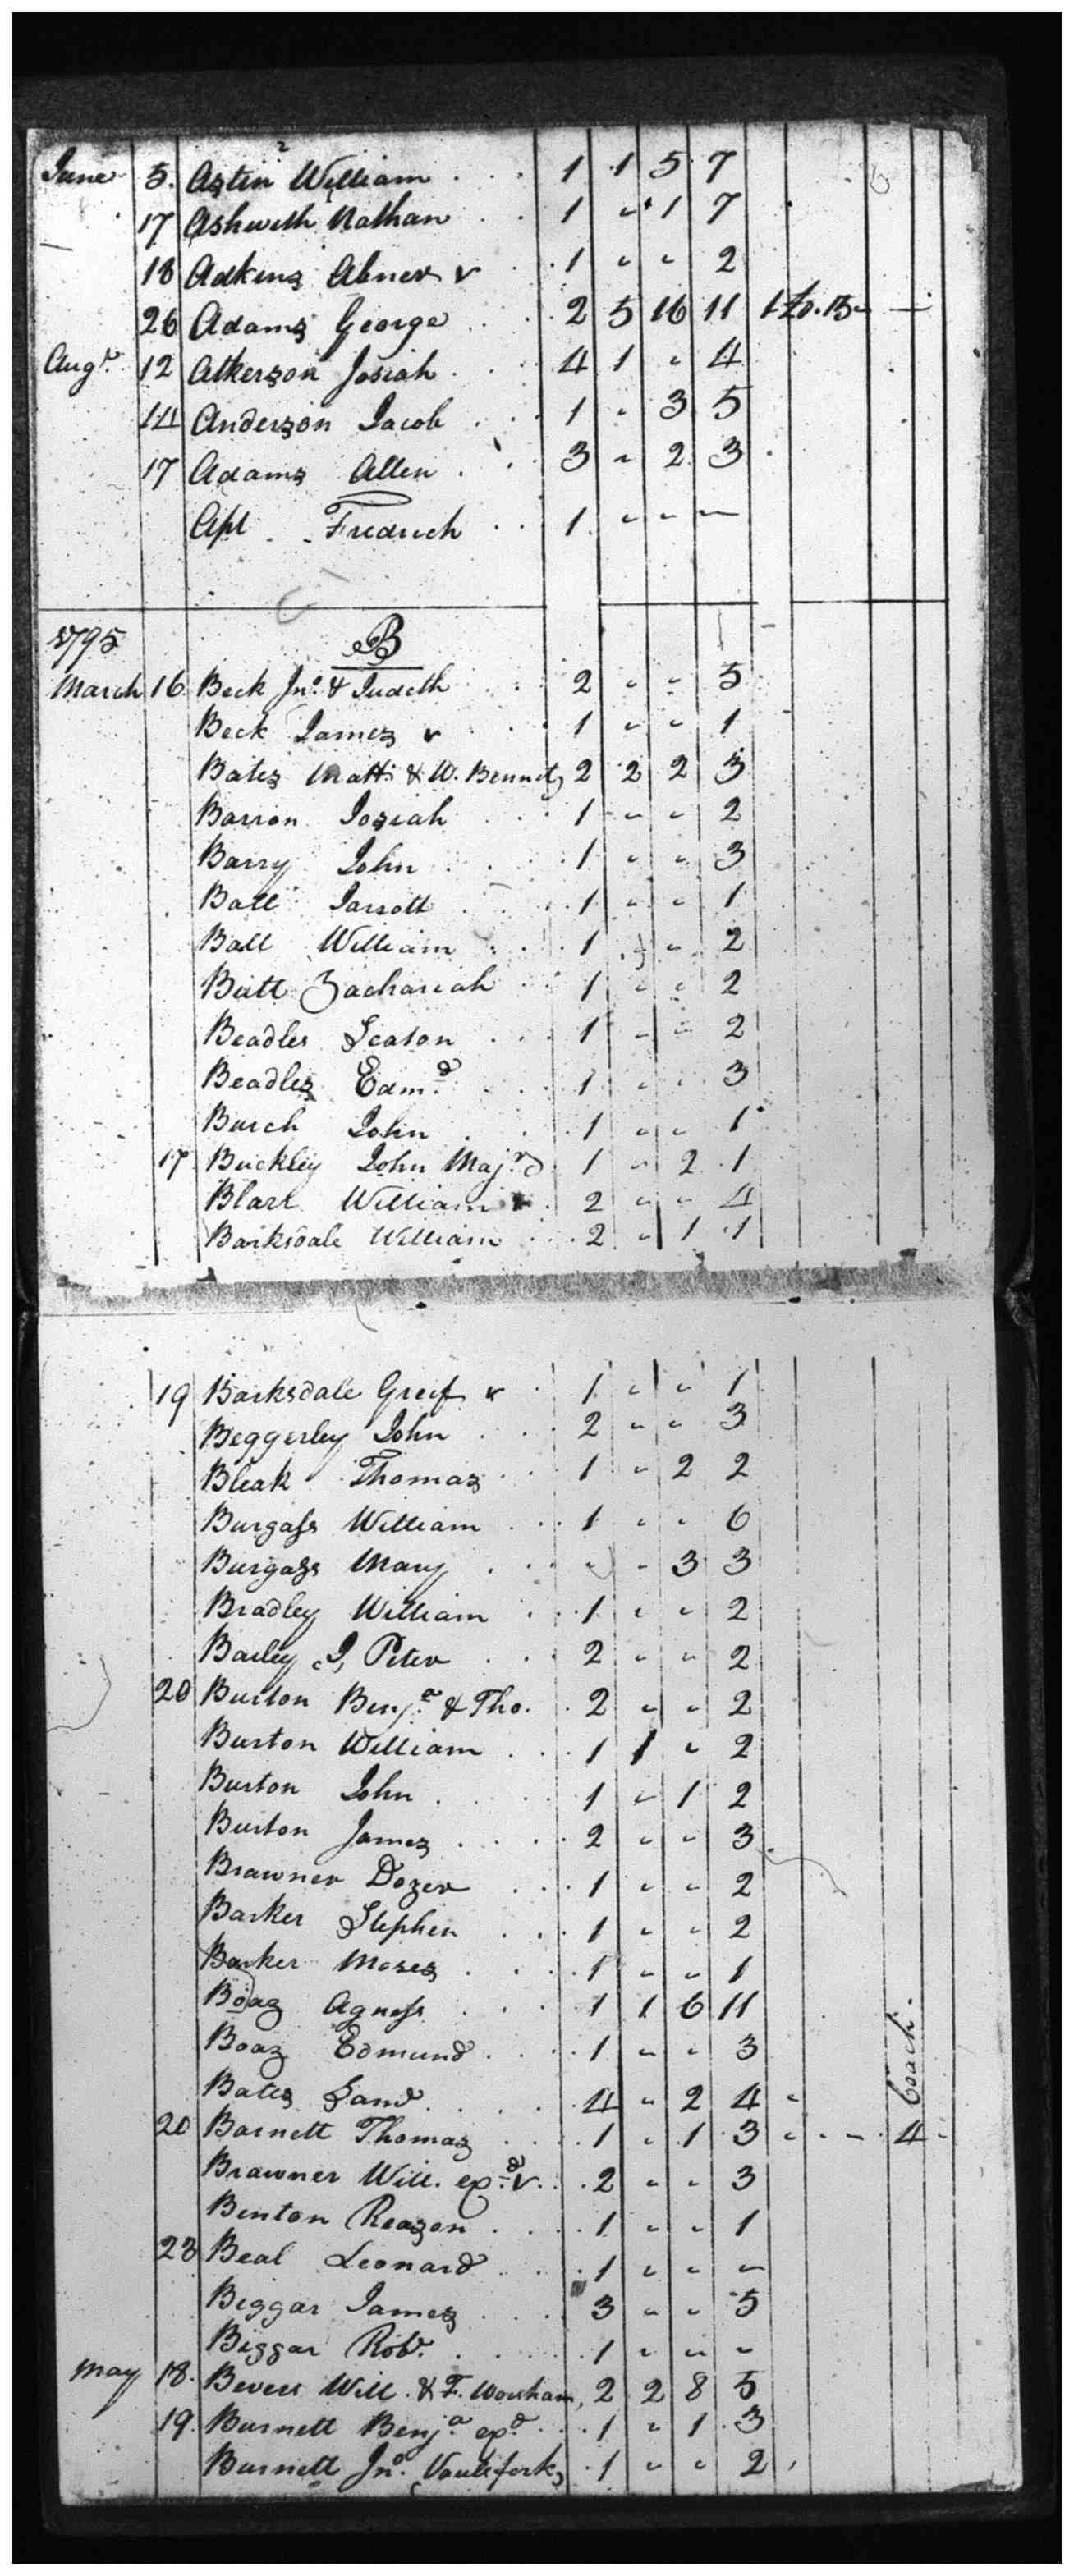 June 5. Astin William . . . 1 1 5 7
17 Ashworth Nathan . . 1 " 1 7
18 Adkins Abner v . 1 " " 2
26 Adams George . . . 2 5 16 11
Augt. 12 Atkerson Josiah . . . 4 1 " 4
14 Anderson Jacob . . . 1 " 3 5
17 Adams Allen . . . 3 " 2 3
Apl Fredrich . . 1 " " "
1795
B
March 16 Beck Jno. & Judeth . . 2 " " 5
Beck James v . . 1 " " 1
Bates Matt: & W. Bennet, 2 2 2 3
Barron Josiah . . . 1 " " 2
Barry John . . . 1 " " 3
Ball Jarrott . . . 1 " " 1
Ball William . . . 1 " " 2
Batt Zachariah . . 1 " " 2
Beadles Seaton . . . 1 " " 2
Beadles Edmd. . . . 1 " " 3
Burch John . . . 1 " " 1
17 Buckley John Majr. 1 " 2 1
Blare William v . 2 " " 4
Barksdale William . . 2 " 1 1
19 Barksdale Greef v . 1 " " 1
Beggerley John . . . 2 " " 3
Bleak Thomas . . 1 " 2 2
Burgass William . . . 1 " " 6
Burgass Mary . . . " " 3 3
Bradley William . . 1 " " 2
Bailey J, Peter . . . 2 " " 2
20 Burton Benja. & Tho. . 2 " " 2
Burton William . . . 1 1 " 2
Burton John . . . . 1 " 1 2
Burton James . . . . 2 " " 3
Brawner Dozer . . . 1 " " 2
Barker Stephen . . . 1 " " 2
Barker Moses . . . 1 " " 1
Boaz Agness . . . 1 1 6 11
Boaz Edmund . . . . 1 " " 3
Bates Land . . . . 4 " 2 4 "
Coach.
20 Barnett Thomas . . . 1 " 1 3 " . - . 4 -
Brawner Will. expd. v . . 2 " " 3
Benton Reason . . . . 1 " " 1
23 Beal Leonard . . . 1 " " "
Biggar James . . . 3 " " 5
Biggar Robt. . . . . 1 " " "
May 18. Bevers Will. & F. Worsham, 2 2 8 5
19. Burnett Benja. expd. . . 1 " 1 3
Burnett Jno. . 1 " " 2